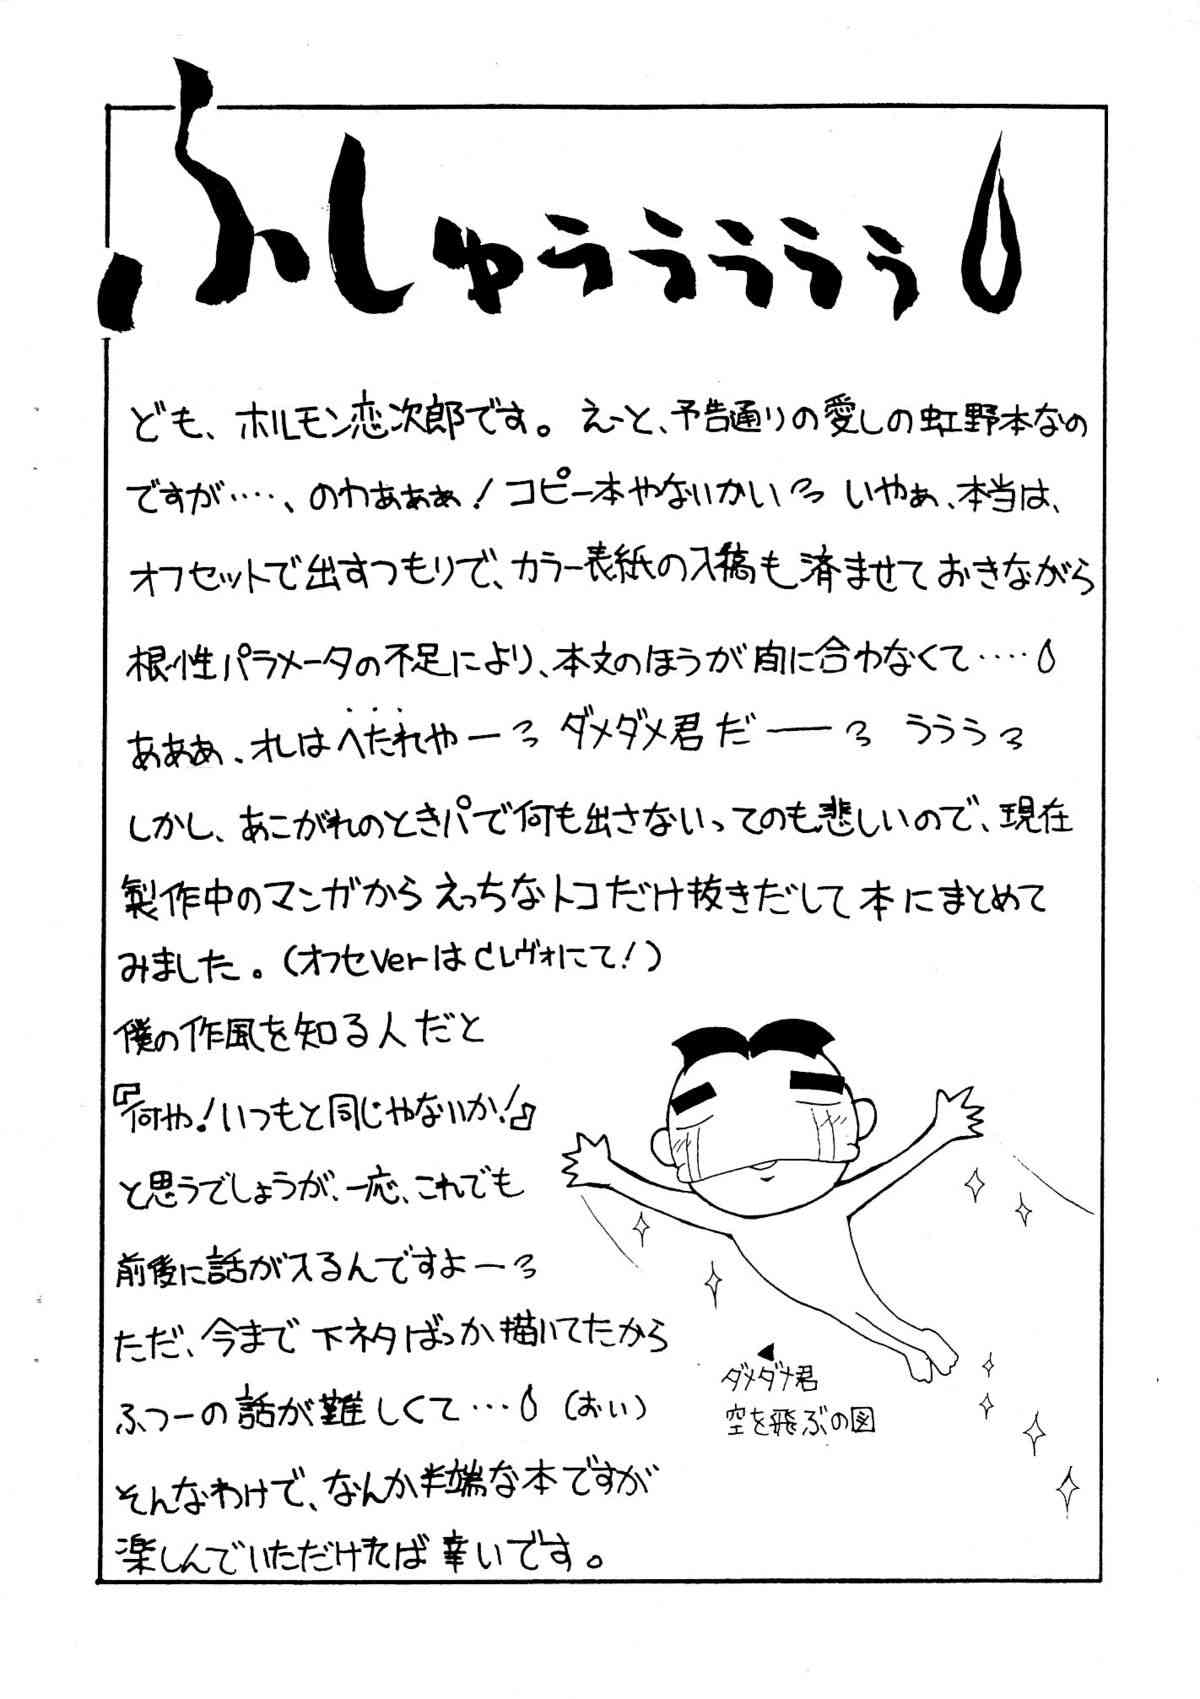 ふしゅぅぅぅぅぅ
ども、ホルモン恋次郎です。えーと、予告通りの愛しの虹野本なの
ですが‥‥、のわあぁぁ!コピー本やないかいっ いやぁ、本当は、
オフセットで出すつもりで、カラー表紙の入稿も済ませておきながら
根性パラメータの不足により、本文のほうが間に合わなくて‥‥
あぁぁ、オレはへたれやーっ ダメダメ君だーーっ ううぅっ
しかし、あこがれのときパで何も出さないってのも悲しいので、現在
製作中のマンガからえっちなトコだけ抜きだして本にまとめて
みました。(オフセVerはCレヴォにて!)
僕の作風を知る人だと
『何や!いつもと同じやないか!』
と思うでしょうが、一応、これでも
前後に話が入るんですよーっ
ただ、今まで下ネタばっか描いてたから
ふつーの話が難しくて…(おぃ)
そんなわけで、なんか半端な本ですが
楽しんでいただければ幸いです。
ダメダメ君
空を飛ぶの図